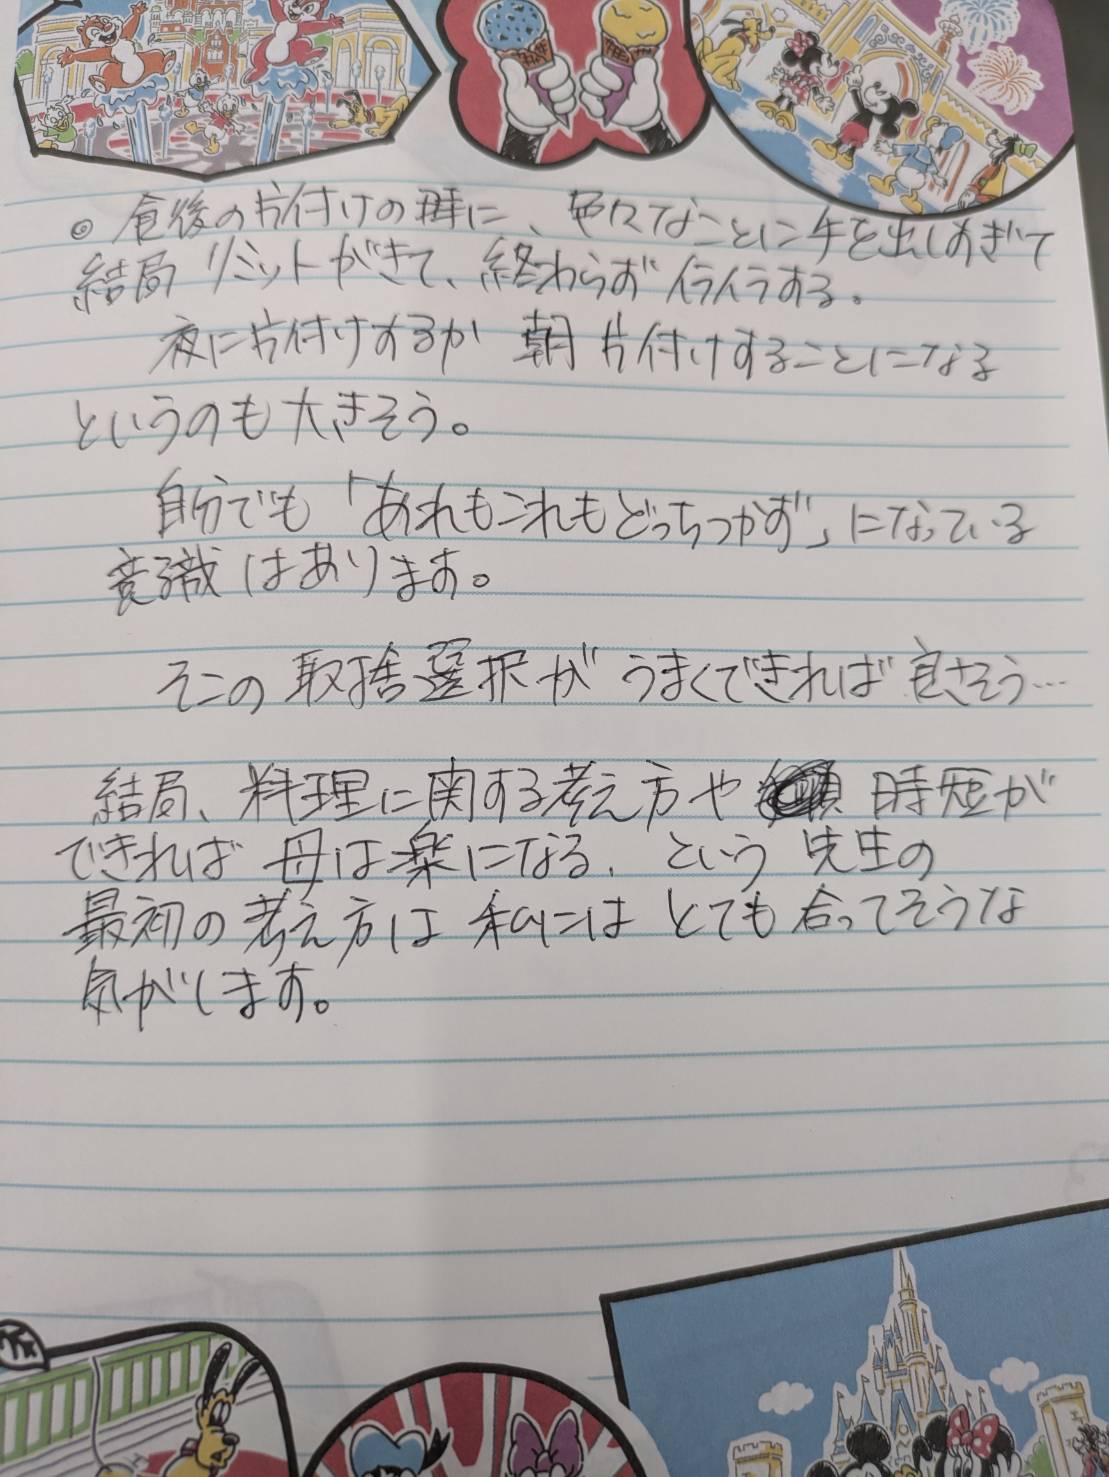 ◎食後の片付けの時に、色々なことに手を出しすぎて
結局リミットがきて、終わらずイライラする。
夜に片付けするか 朝片付けすることになる
というのも大きそう。
自分でも「あれもこれもどっちつかず」になっている
意識はあります。
そこの取捨選択がうまくできれば良さそう…
結局、料理に関する考え方や 時短が
できれば母は楽になる、という先生の
最初の考え方は私にはとても合ってそうな
気がします。